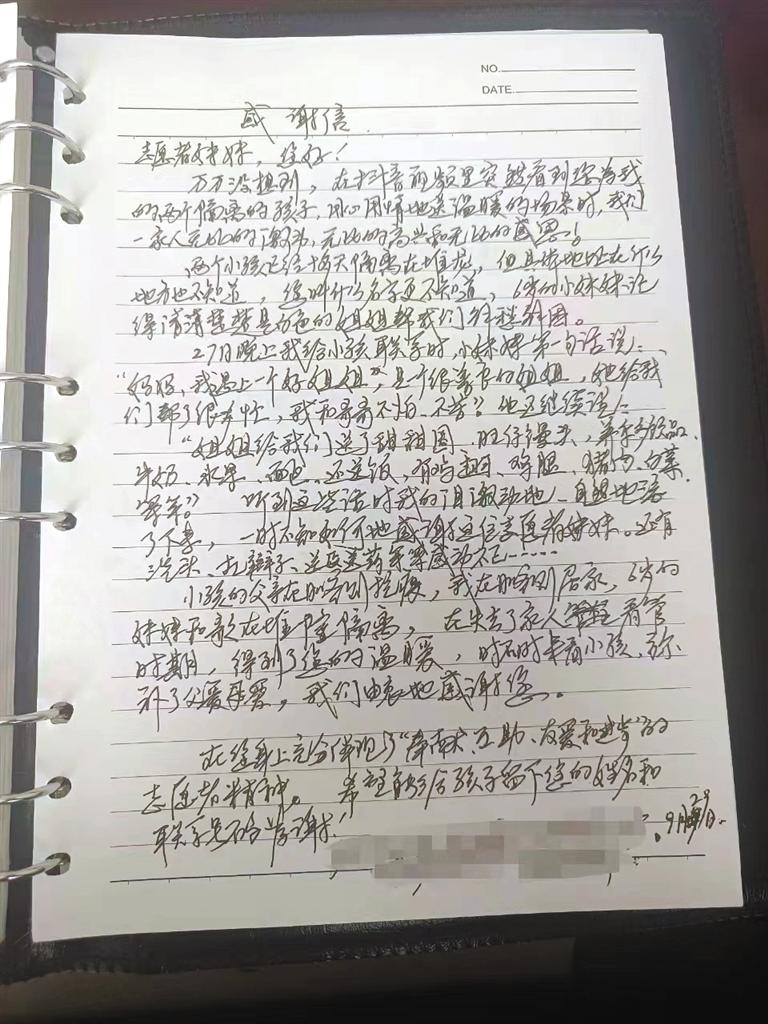 NO.
DATE.
感谢信
志愿者妹妹，您好！
万万没想到，在抖音视频里突然看到您为我
的两个隔离的孩子，用心用情地送温暖的场景时，我们
一家人无比的激动，无比的高兴和无比的感恩！
两个小孩已经十多天隔离在堆龙，但具体地址在什么
地方也不知道，您叫什么名字更不知道，6岁的小妹妹记
得清清楚楚是白色的姐姐帮我们
27日晚上我给小孩联系时，小妹妹第一句话说：
“妈妈，我遇上一个好姐姐”，是一个很善良的姐姐，她给我
们帮了很多忙，我和哥哥不怕、不苦”。他又继续说：
“姐姐给我们送了甜甜圈、旺仔馒头、许多饮品、
牛奶、水果、面包、还送饭、有鸡翅、鸡腿、猪肉、白菜
等等。”听到这些话时我的泪激动地、自觉地流
了下来，一时不知如何地感谢这位志愿者妹妹。还有
洗头、扎辫子、送医送药等等感动不已……
小孩的父亲在那曲抗疫，我在日喀则居家，6岁的
妹妹和哥在堆隔离，在失去了家人看管
时期，得到了您的温暖，时不时来看小孩、弥
补了父爱母爱，我们由衷地感谢您。
在您身上充分体现了“奉献、互助、友爱和进步”的
志愿者精神。希望能够给孩子留下您的姓名和
联系号不分谢！
9月29日.